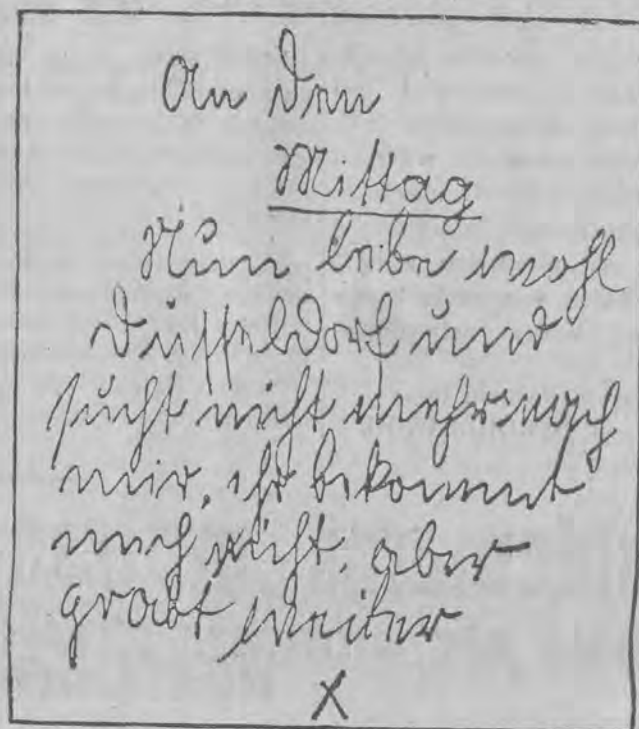 An den
Mittag
Nun lebe wohl
Düsseldorf und
sucht nicht mehr nach
mir, ihr bekommt
mich nicht, aber
grabt weiter
X